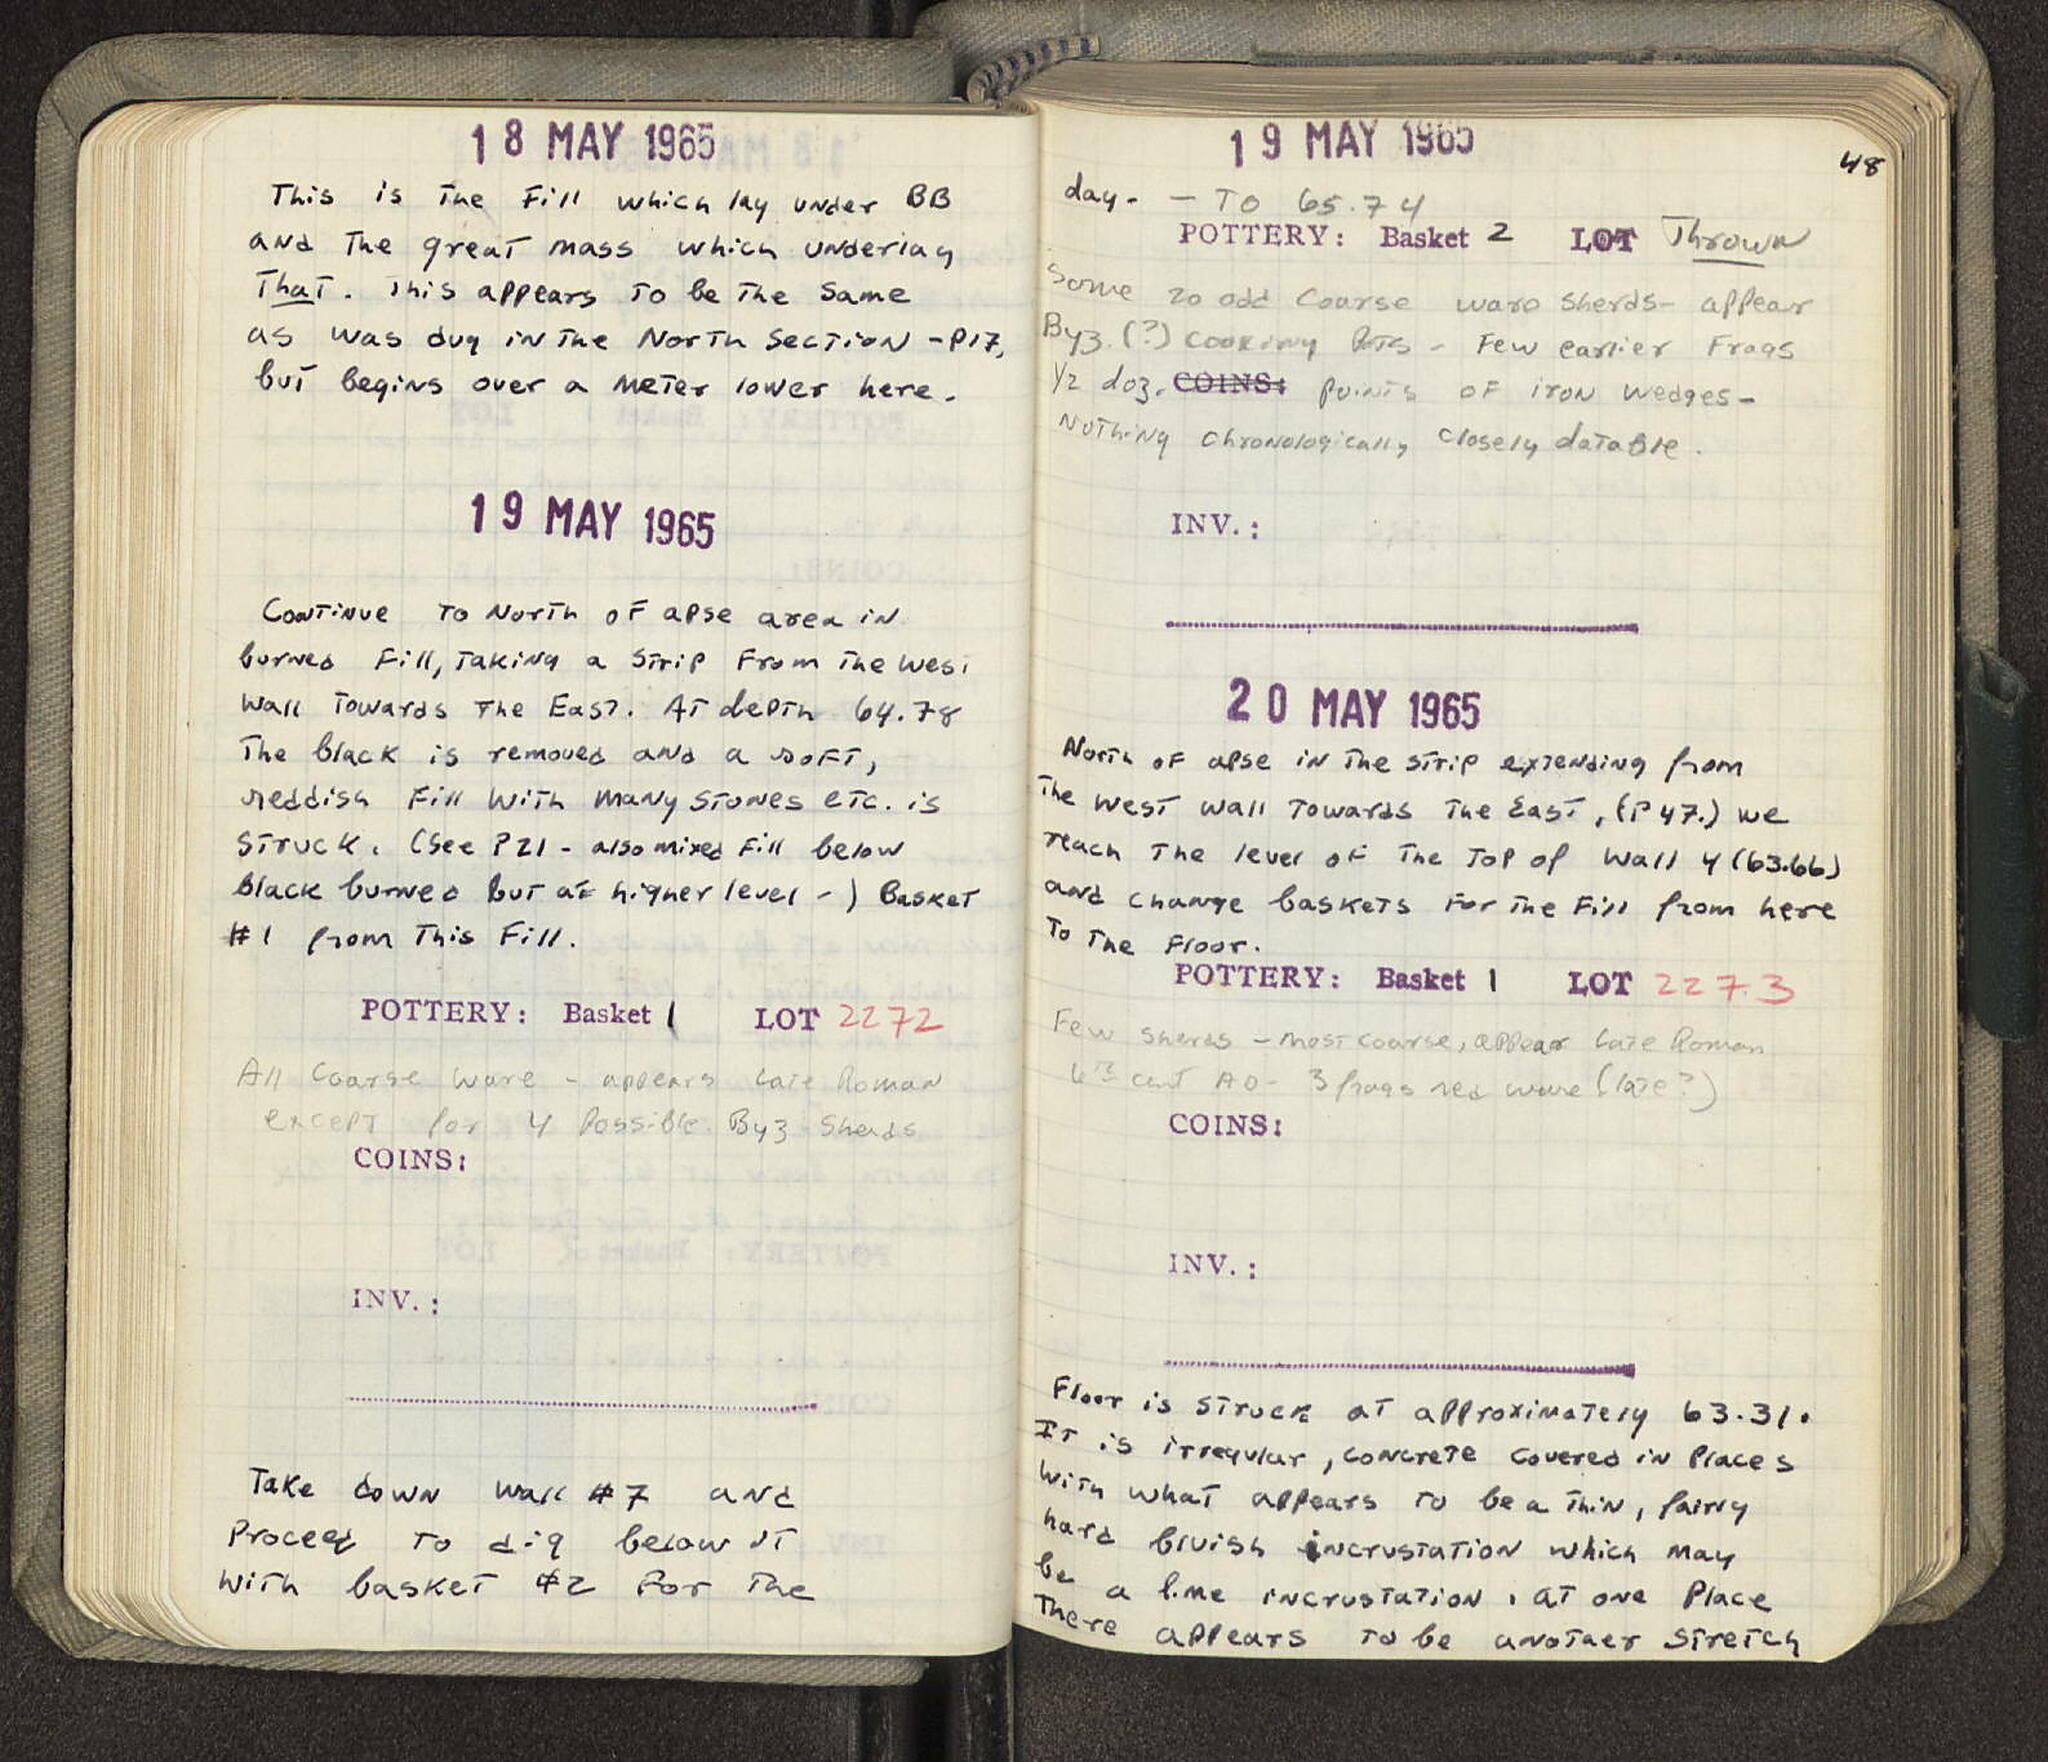 18 MAY 1965
This is the Fill which lay under BB
and the great mass which underlay
That. This appears to be the same
as was dug in the North Section - P17,
but begins over a meter lower here.
19 MAY 1965
Continue to North of apse area in
burned Fill, taking a strip From the West
Wall Towards The East. At depth 64.78
The black is removed and a soft,
reddish Fill with many stones etc. is
struck. (See P21 - also mixed Fill below
black burned but at higher level -) Basket
#1 from This Fill.
POTTERY: Basket 1 LOT 2272
All Coarse Ware - appears Late Roman
except for 4 possible Byz Sherds
COINS:
INV.:
Take down Wall #7 and
Proceed to dig below it
with basket #2 for the
48
19 MAY 1965
day. - TO 65.74
POTTERY: Basket 2 LOT Thrown
Some 20 odd Coarse ware sherds - appear
Byz. (?) cooking Pots - Few earlier Frags
1/2 doz. COINS: points of iron wedges -
Nothing chronologically closely datable.
INV.:
20 MAY 1965
North of apse in the strip extending from
The West Wall Towards The East, (P 47.) we
reach The level of The Top of Wall 4 (63.66)
and change baskets for the Fill from here
To The Floor.
POTTERY: Basket 1 LOT 2273
Few sherds - most coarse, appear Late Roman
6th cent AD - 3 frags red ware (late?)
COINS:
INV.:
Floor is struck at approximately 63.31.
It is irregular, concrete covered in places
With what appears to be a thin, fairly
hard bluish incrustation which may
be a lime incrustation. At one Place
There appears to be another stretch